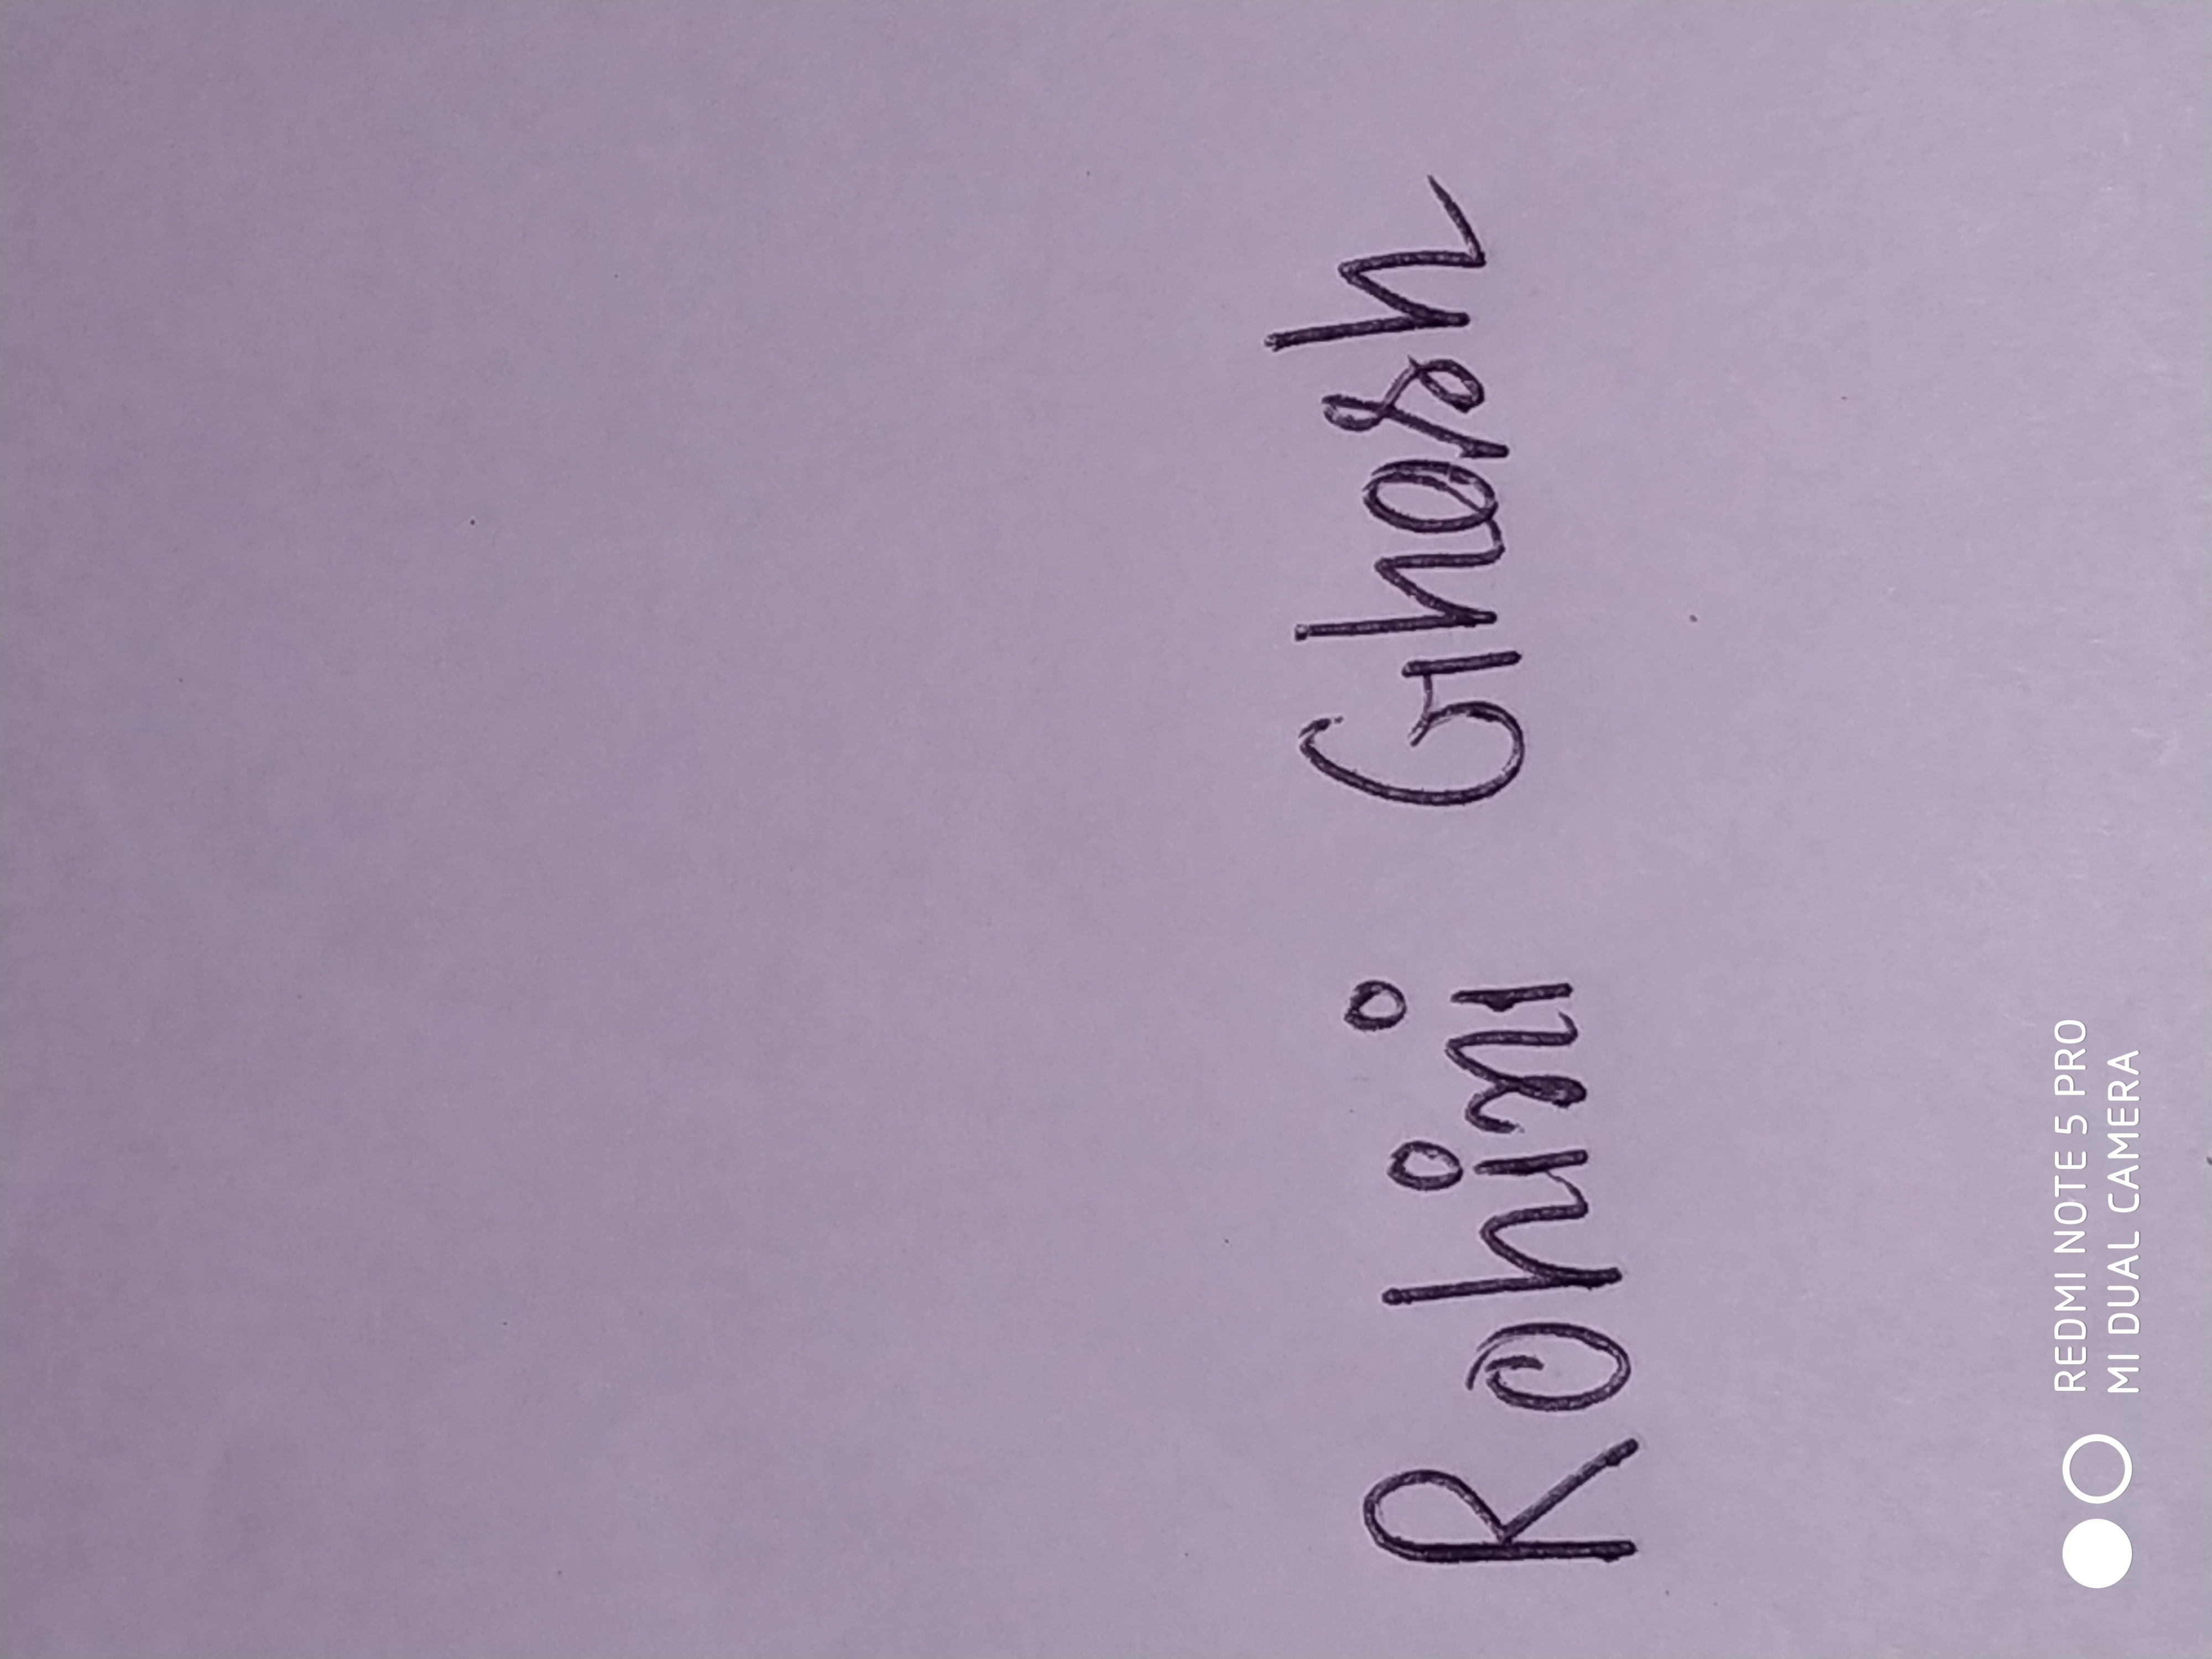 Rohini Ghosh
REDMI NOTE 5 PRO
MI DUAL CAMERA